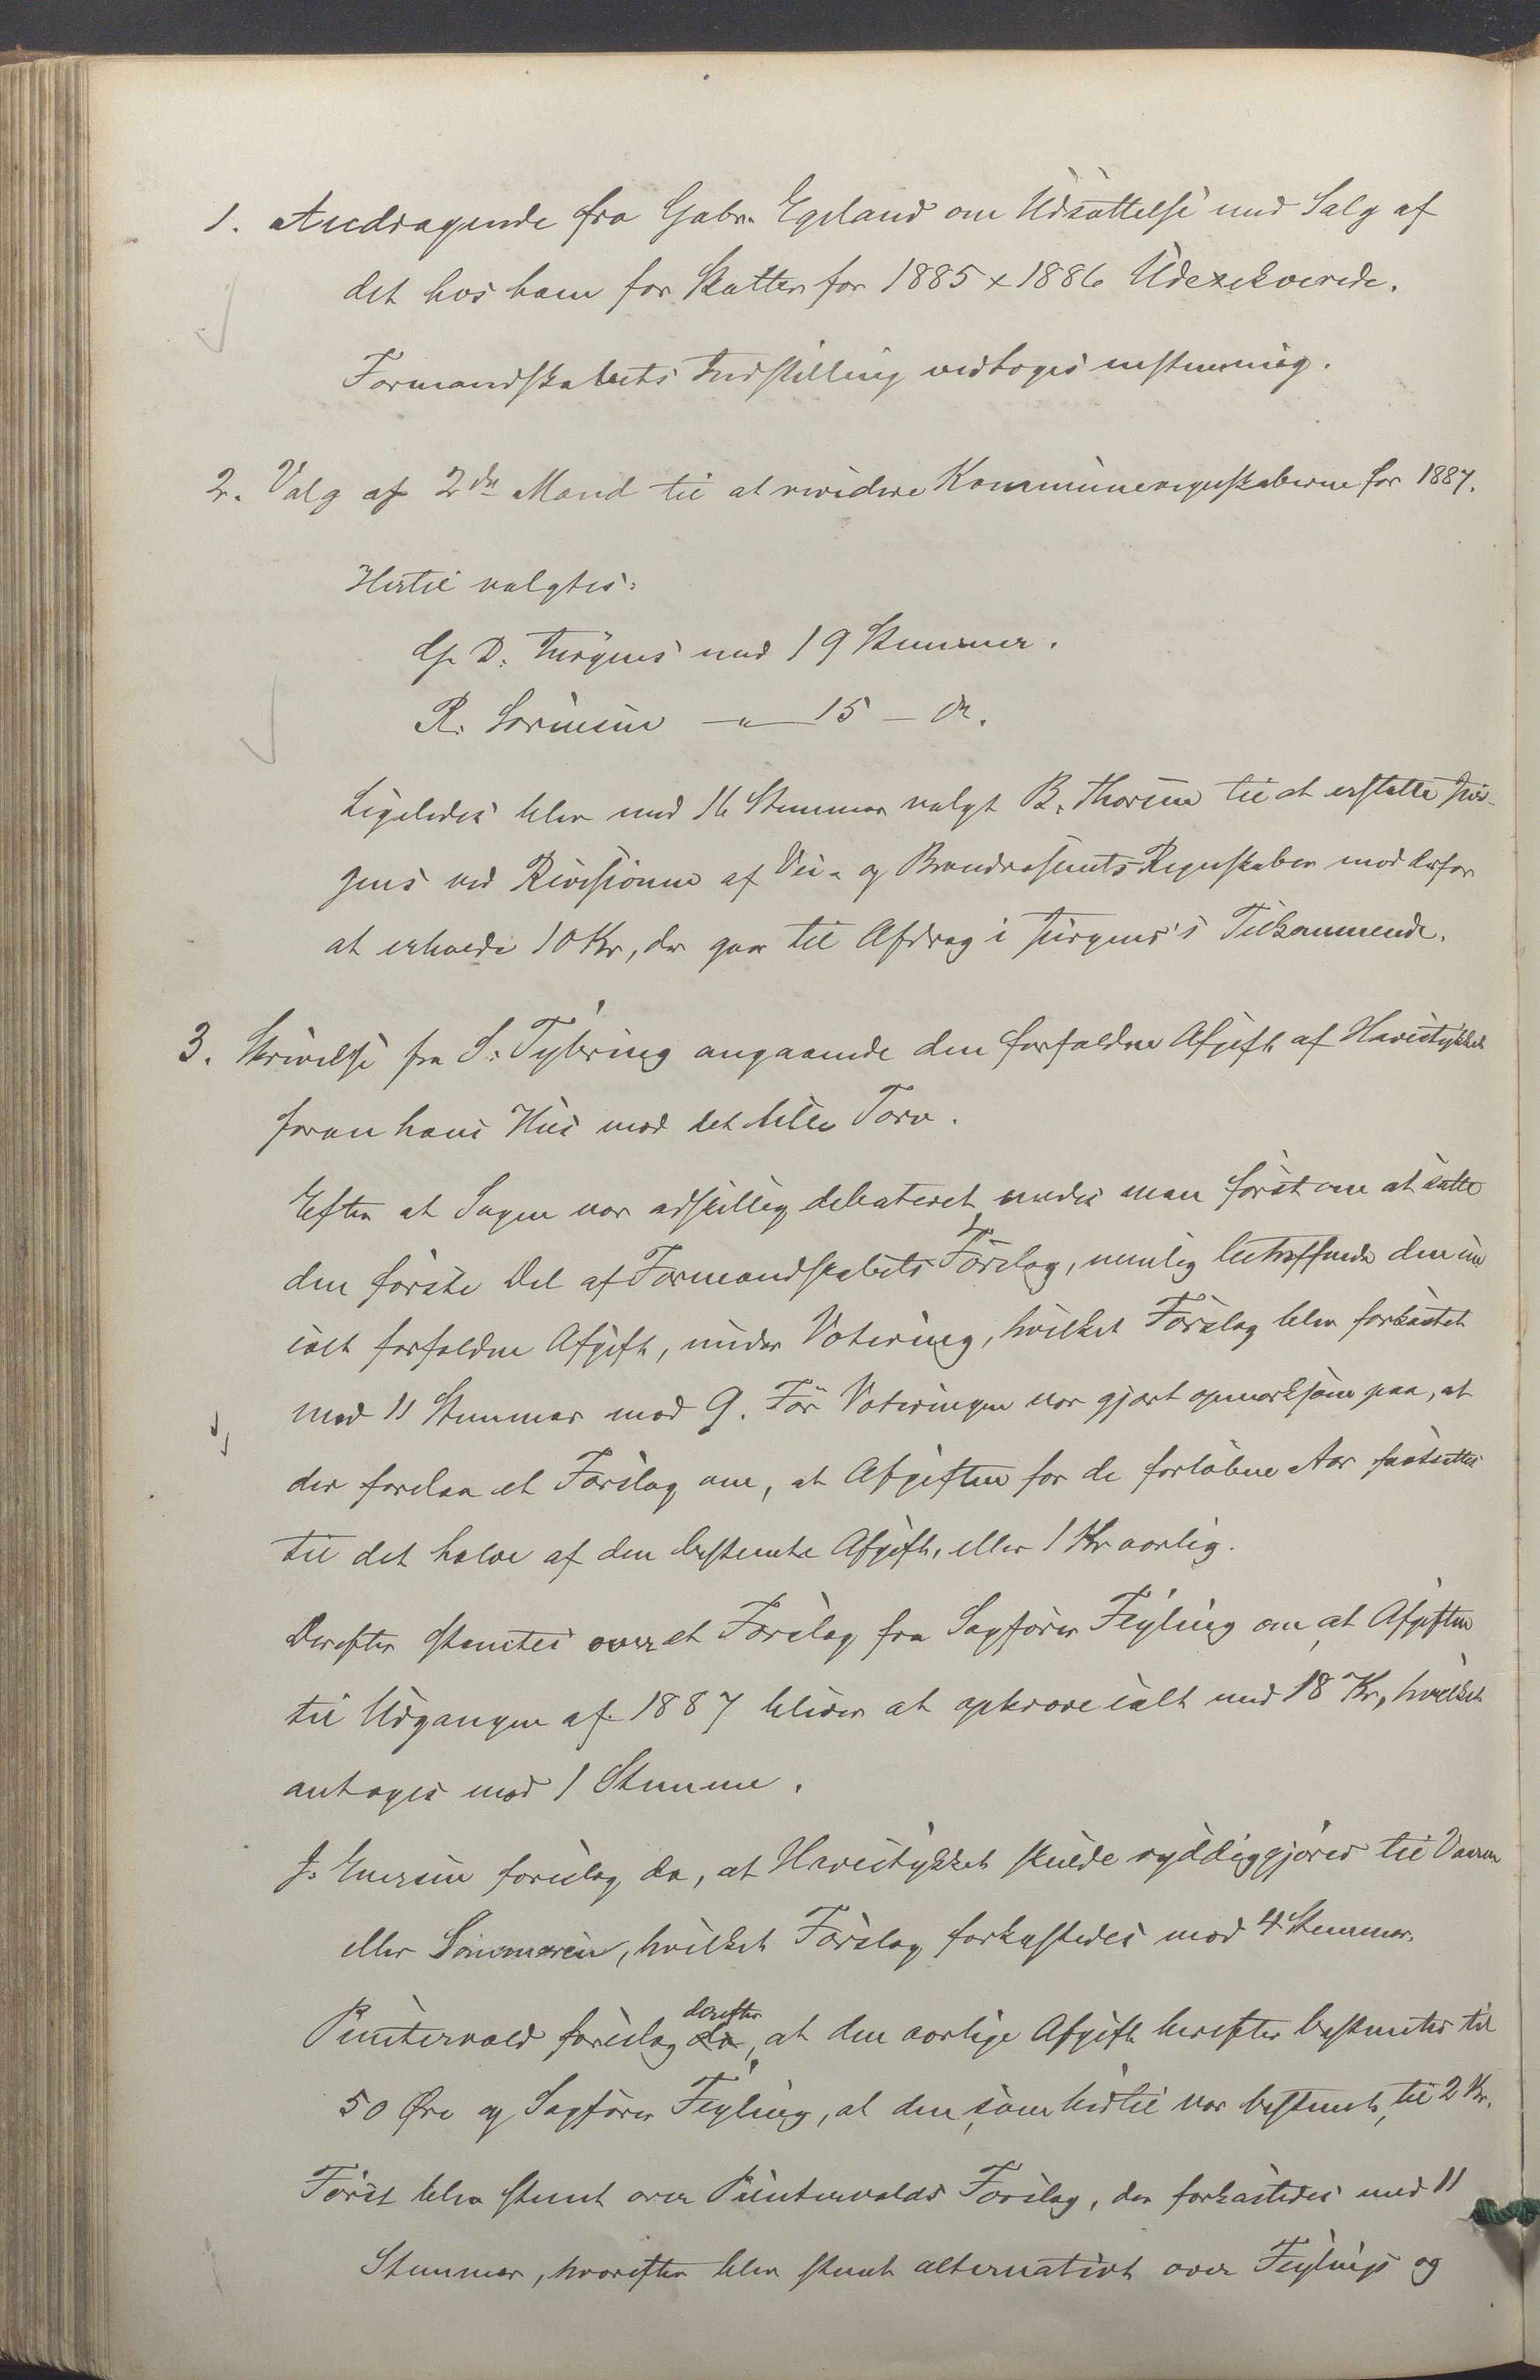 1. Andragende fra Gabr. Egeland om Udsættelse med Salg af
det hos ham for Skatten for 1885 & 1886 Udexekverede.
Formandskabets Indstilling vedtoges enstemmig.
2. Valg af 2de Mænd til at revidere Kommuneregnskaberne for 1887.
Hertil valgtes:
D. Jürgens med 19 Stemmer.
R. Sørensen —"— 15 — do.
Ligeledes blev med 16 Stemmer valgt B. Thorsen til at erstatte Jür-
gens ved Revisionen af Vei- og Brandvæsenets Regnskaber mod derfor
at erholde 10 Kr, der gaar til Afdrag i Jürgens's Tilkommende.
3. Skrivelse fra S. Tybring angaaende den forfaldne Afgift af Havestykket
foran hans Hus mod det lille Torv.
Efter at Sagen var adskillig debateret enedes man først om at sætte
den første Del af Formandskabets Forslag, nemlig betræffende den nu
ialt forfaldne Afgift, under Votering, hvilket Forslag blev forkastet
med 11 Stemmer mod 9. Før Voteringen var gjort opmærksom paa, at
der forelaa et Forslag om, at Afgiften for de forløbne Aar fastsættes
til det halve af den bestemte Afgift, eller 1 Kr aarlig.
Derefter stemtes over et Forslag fra Sagfører Feyling om at Afgiften
til Udgangen af 1887 bliver at opkræve ialt med 18 Kr, hvilket
antoges mod 1 Stemme.
J. Enersen foreslog da, at Havestykket skulde ryddiggjøres til Vaaren
eller Sommeren, hvilket Forslag forkastedes mod 4 Stemmer.
Puntervold foreslog da derefter, at den aarlige Afgift herefter bestemtes til
50 Øre og Sagfører Feyling, at den, som hidtil var bestemt, til 2 Kr.
Først blev stemt over Puntervolds Forslag, der forkastedes med 11
Stemmer, hvorefter blev stemt alternativt over Feylings og